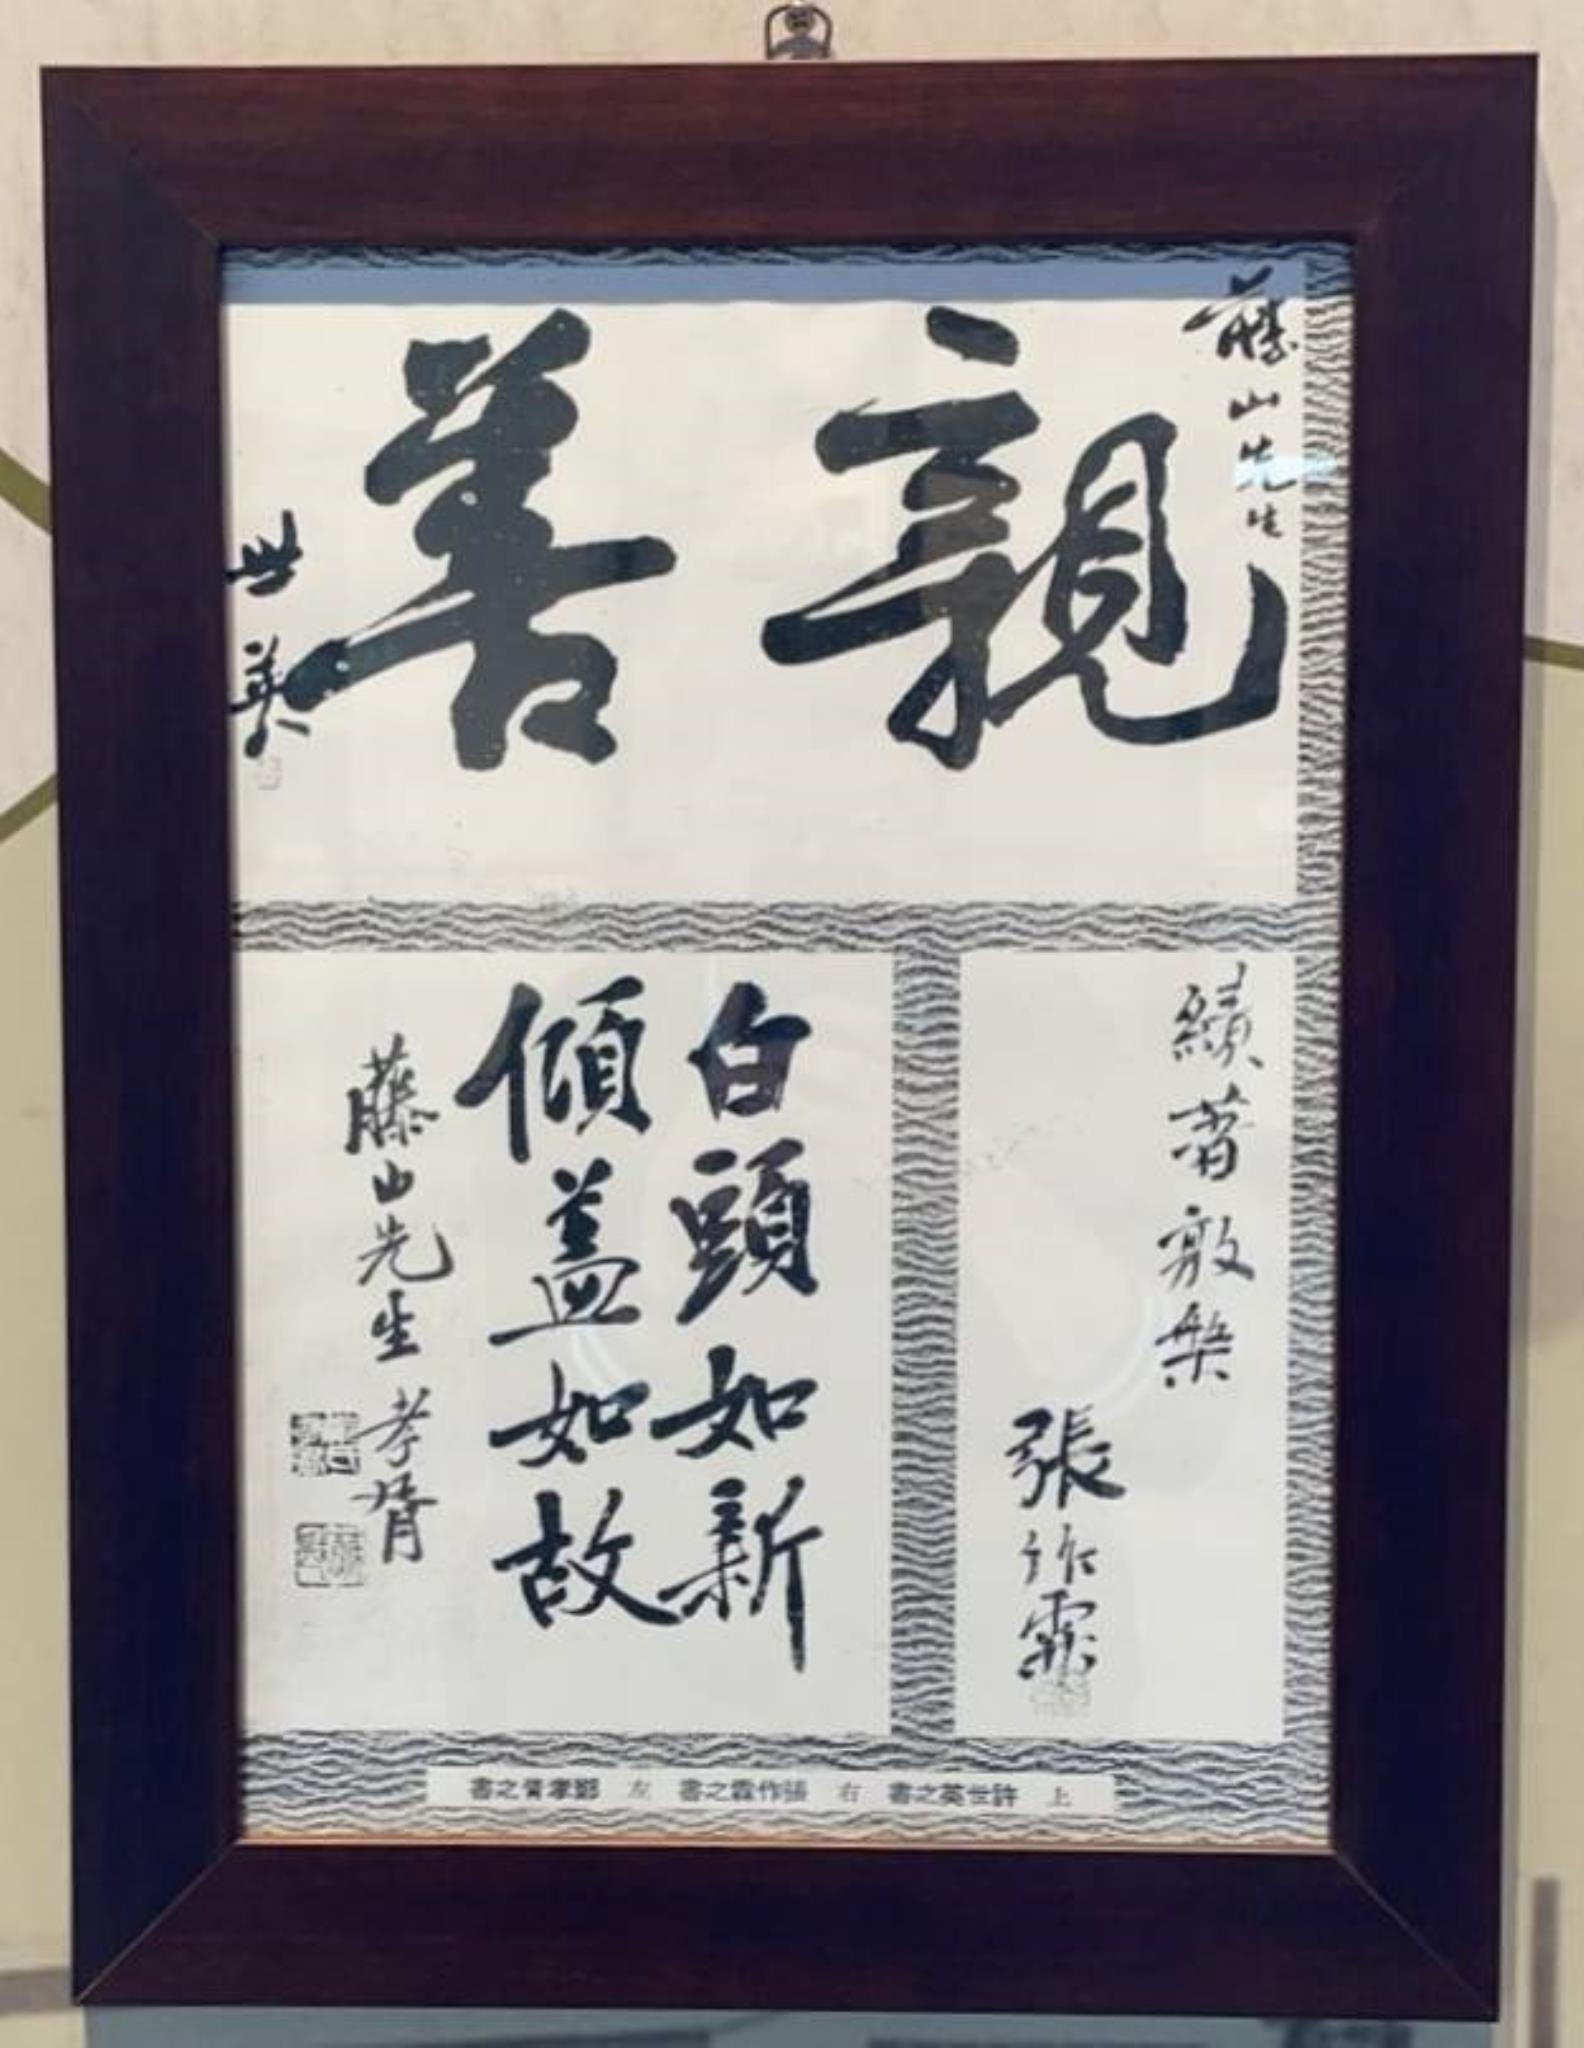 藤山先生
親善
世英
績著敦槃
張作霖
白頭如新
傾蓋如故
藤山先生 孝胥
上 許世英之書 右 張作霖之書 左 鄭孝胥之書